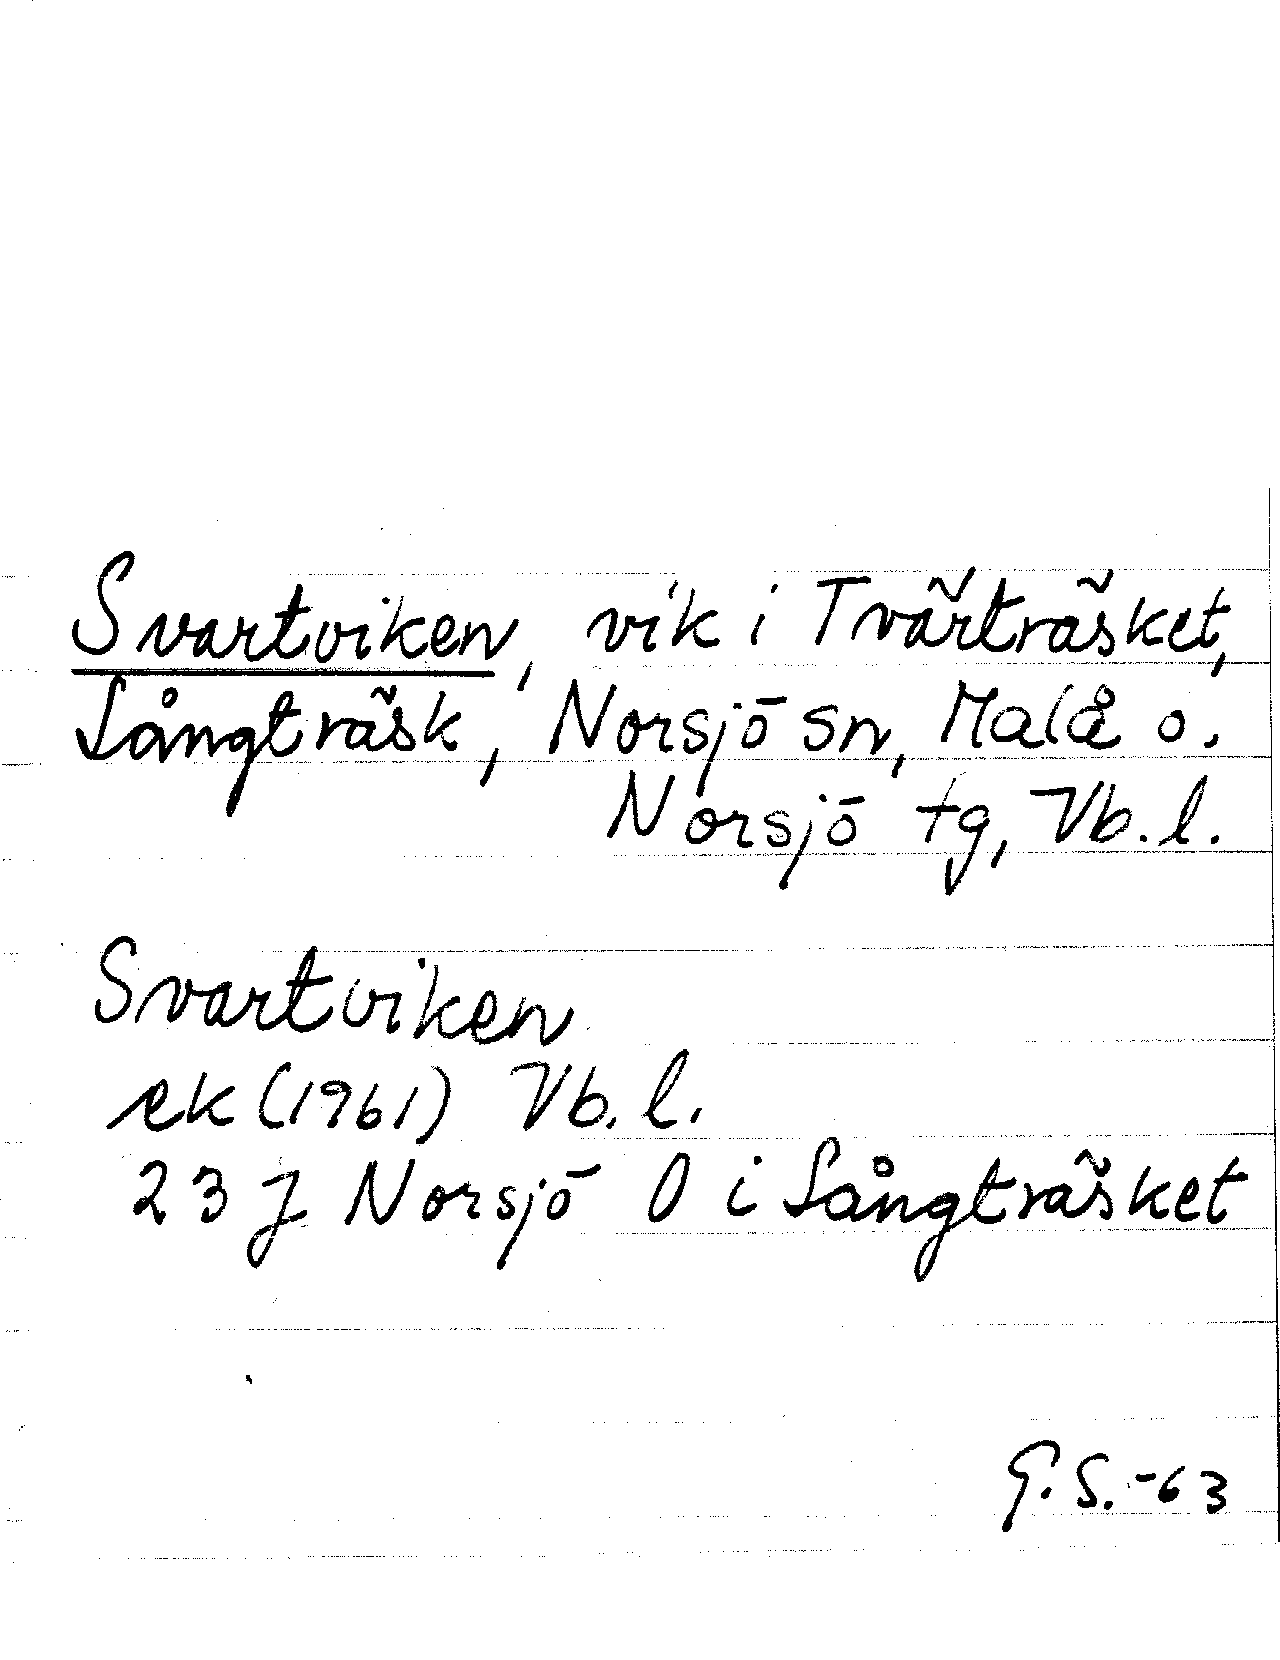 Svartviken, vik i Tvärträsket,
Långträsk, Norsjö sn, Malå o.
Norsjö tg, Vb. l.
Svartviken
ek (1961) Vb. l.
23 J Norsjö O i Långträsket
G. S. -63